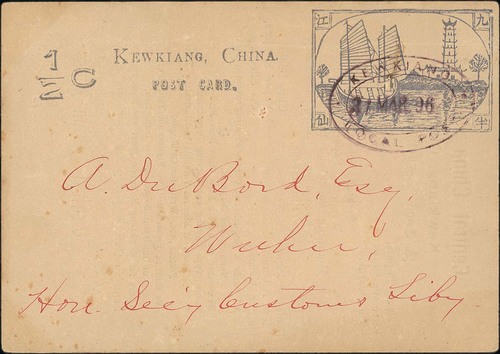 江 九
KEWKIANG, CHINA.
POST CARD.
KEWKIANG
27 MAR 96
LOCAL POST
仙 半
A. DuBord, Esq,
Wuhu,
Hon. Sec'y Customs Liby